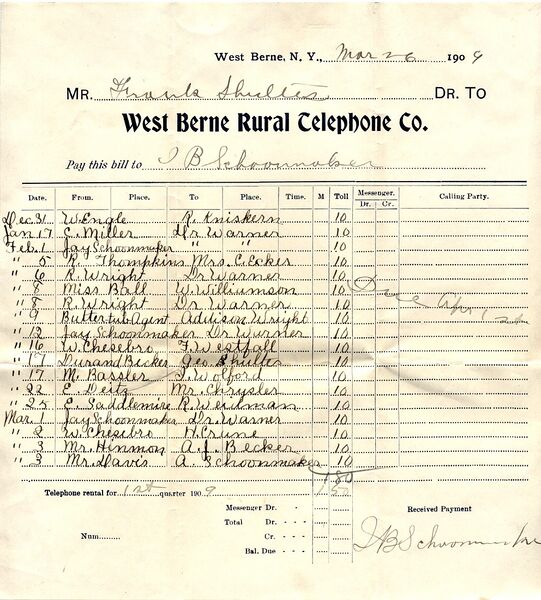 West Berne, N. Y., Mar 26 1909
MR. Frank Shultes DR. TO
West Berne Rural Telephone Co.
Pay this bill to I B Schoonmaker
Date. From. Place. To Place. Time. M Toll Messenger. Dr. Cr. Calling Party.
Dec 31 W. Engle R. Kniskern 10
Jan 17 E. Miller Dr Warner 10
Feb. 1 Jay Schoonmaker " " 10
" 5 R. Thompkins Mrs. C. Ecker 10
" 6 R. Wright Dr Warner 10
" 8 Miss Ball W. Williamson 10 Due Apr 1st
" 8 R. Wright Dr Warner 10
" 9 Buttertub Agent Addison Wright 10
" 12 Jay Schoonmaker Dr Warner 10
" 16 W. Chesebro F. Westfall 10
" 17 Durand Becker Geo Shultes 10
" 17 M. Bassler I. Wolford 10
" 22 E. Deitz Mr. Chrysler 10
" 25 E. Saddlemire R. Weidman 10
Mar. 1 Jay Schoonmaker Dr. Warner 10
" 2 W. Chesebro H. Crune 10
" 3 Mr. Hinmon A. J. Becker 10
" 3 Mr. Davis A. Schoonmaker 10
1 80
Telephone rental for 1st quarter 1909 1 50
Messenger Dr.
Received Payment
Total Dr.
Num. Cr.
I B Schoonmaker
Bal. Due